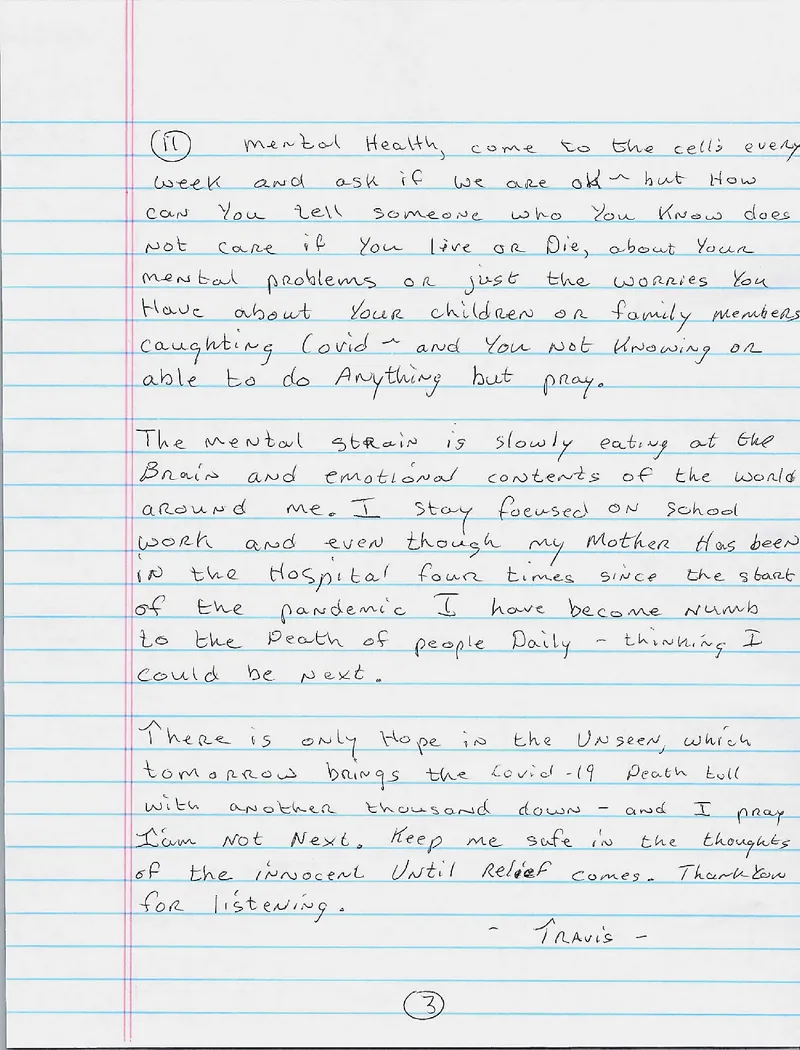 (11) Mental Health, come to the cell's every
week and ask if we are ok ~ but How
can You tell someone who You Know does
Not care if You live or Die, about Your
mental problems or just the worries You
Have about Your children or family members
caughting Covid ~ and You Not Knowing or
able to do Anything but pray.
The mental strain is slowly eating at the
Brain and emotional contents of the world
around me. I stay focused on school
work and even though my Mother Has been
in the Hospital four times since the start
of the pandemic I have become Numb
to the Death of people Daily - thinking I
could be Next.
There is only Hope in the Unseen, which
tomorrow brings the Covid-19 Death tull
with another thousand down - and I pray
I'am Not Next. Keep me safe in the thoughts
of the innocent Until Relief comes. Thank You
for listening.
- Travis -
(3)